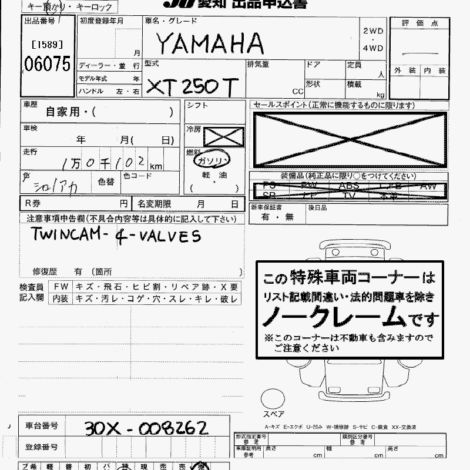 キー預かり・キーロック
JU 愛知 出品申込書
出品番号
[1589]
06075
初度登録年月
ディーラー・並行
モデル年式 年
ハンドル 左・右
車名・グレード
YAMAHA
2WD
・
4WD
評価点
外装 内装
型式
XT250T
排気量
CC
ドア
形状
定員
人
積載
kg
車歴
自家用・( )
シフト
車検
年 月( 日)
冷房
走行
1万0千102km
燃料
ガソリン
軽油
( )
シロ/アカ
色替
色コード
R券
円
名変期限 月 日
セールスポイント(正常に機能するものに限ります)
装備品(純正品に限り○をつけてください)
PS PW ABS エアB AW
SR TV
新車保証書
有・無
後日品
注意事項申告欄(不具合内容等は具体的に記入して下さい)
TWINCAM-4-VALVES
修復歴 有(箇所 )
検査員
記入欄
FW キズ・飛石・ヒビ割・リペア跡・X要
内装 キズ・汚レ・コゲ・穴・スレ・キレ・破レ
この特殊車両コーナーは
リスト記載間違い・法的問題車を除き
ノークレームです
※このコーナーは不動車も含みますので
ご注意ください
スペア
A-キズ E-エクボ U-凹ム W-補修跡 S-サビ C-腐食 XX-交換済
車台番号
30X-008262
登録番号
型式指定番号
参考
類別区分番号
参考
希 軽 普 初 現 売 売